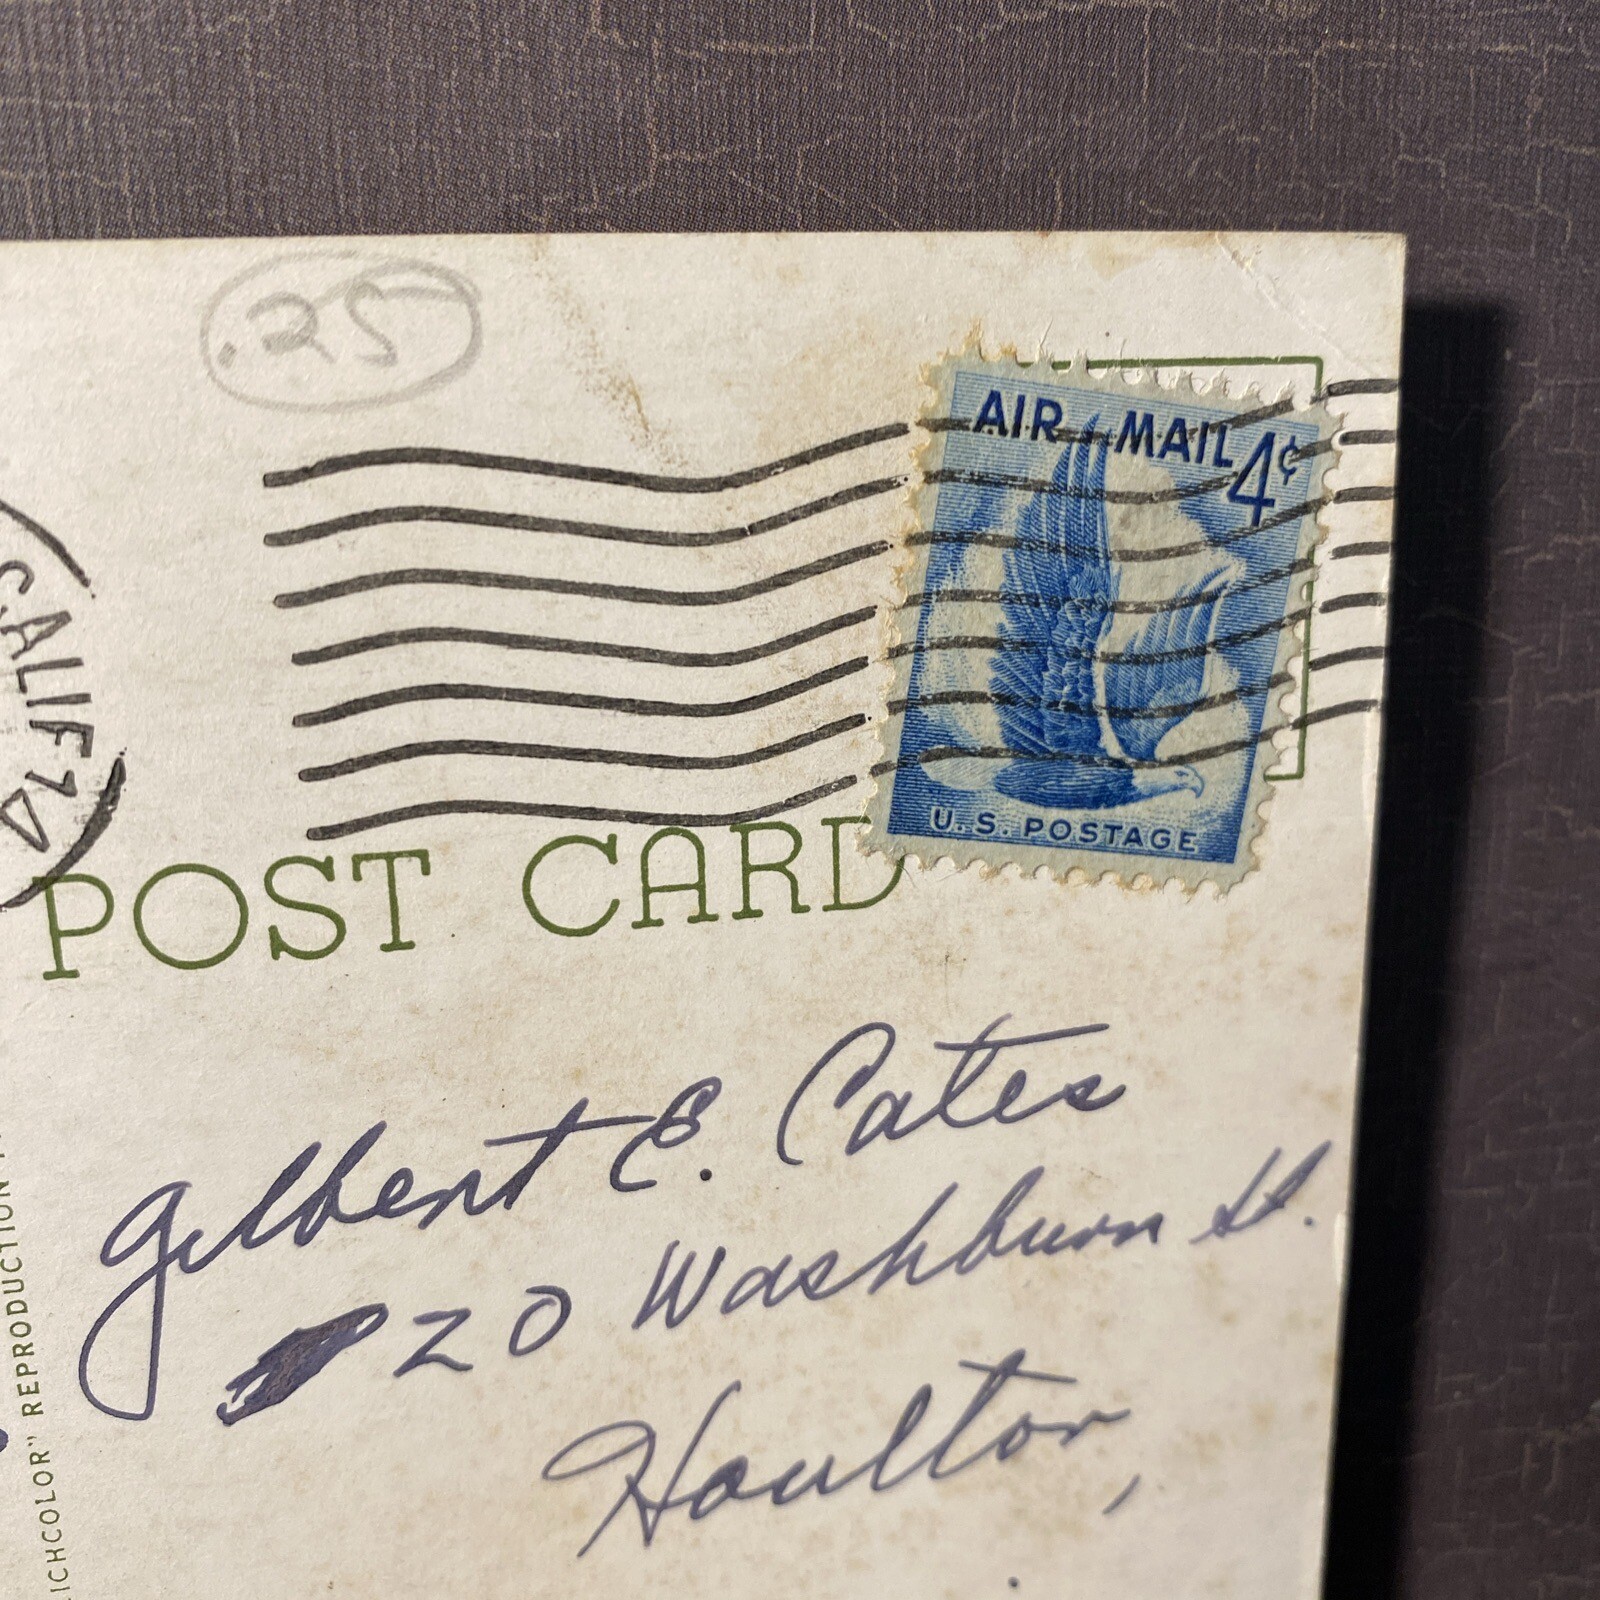 .25
AIR MAIL 4¢
U.S. POSTAGE
CALIF.
POST CARD
Gilbert E. Cates
20 Washburn St.
Houlton,
REPRODUCTION